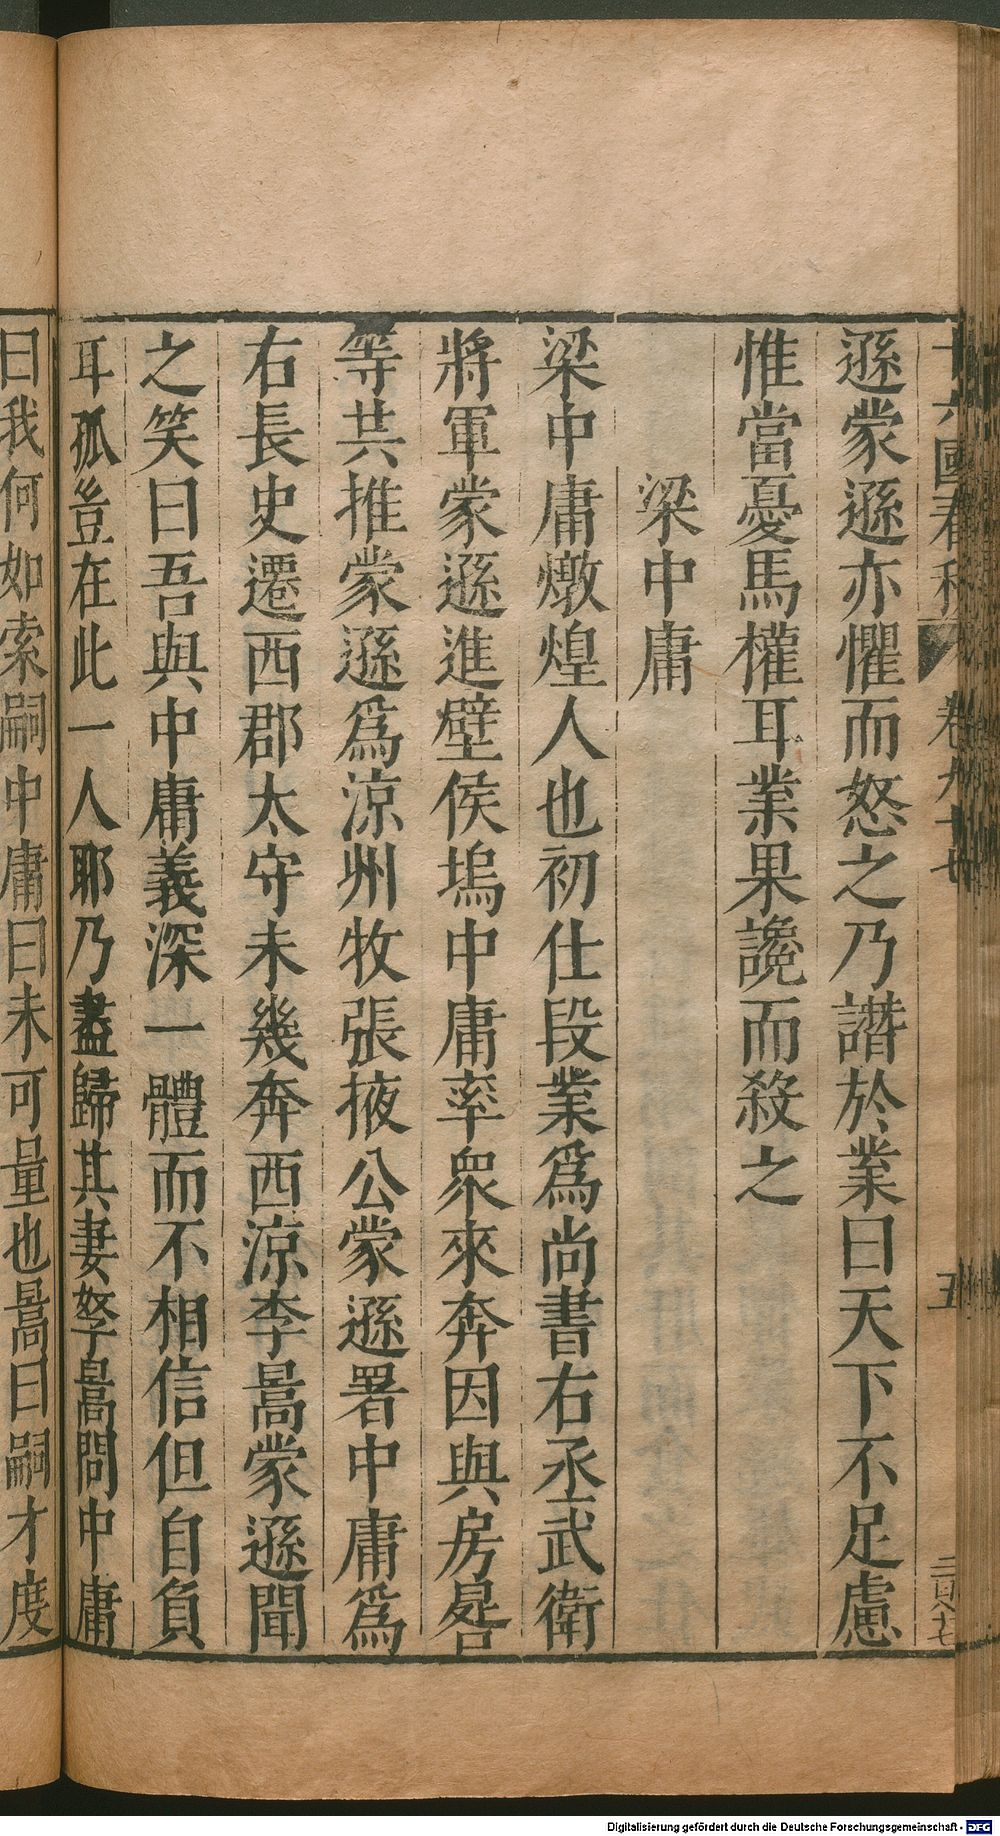 十六國春秋 卷九十七 五
遜蒙遜亦懼而怒之乃譖於業曰天下不足慮
惟當憂馬權耳業果讒而殺之
梁中庸
梁中庸燉煌人也初仕段業爲尚書右丞武衛
將軍蒙遜進壁侯塢中庸率衆來奔因與房晷
等共推蒙遜爲涼州牧張掖公蒙遜署中庸爲
右長史遷西郡太守未幾奔西涼李暠蒙遜聞
之笑曰吾與中庸義深一體而不相信但自負
耳孤豈在此一人耶乃盡歸其妻孥暠問中庸
曰我何如索嗣中庸曰未可量也暠曰嗣才度
Digitalisierung gefördert durch die Deutsche Forschungsgemeinschaft - DFG